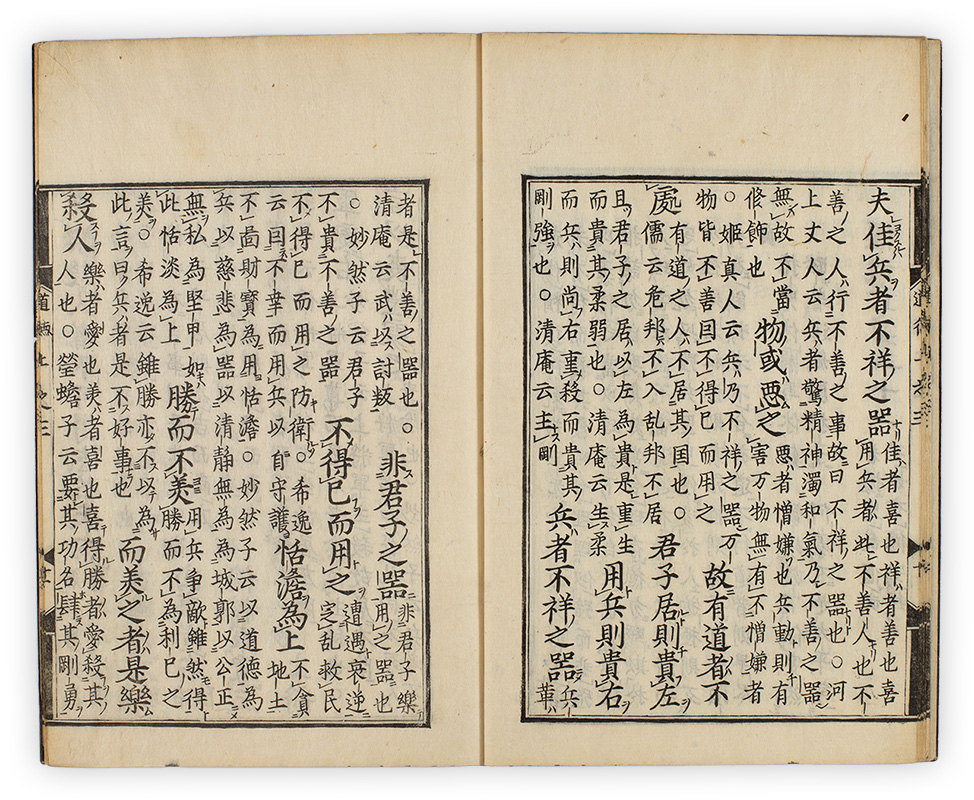 夫佳兵者不祥之器
佳者喜也祥者善也喜
用兵者此不善人也不
善之人行不善之事故曰不祥之器也○河
上丈人云兵者驚精神濁和氣乃不善之器
無故不當
修飾也
物或惡之
惡者憎嫌也兵動則有
害万物無有不憎嫌者
○姬真人云兵乃不祥之器万
物皆不善囙不得已而用之
故有道者不
處
有道之人不居其囯也○
儒云危邦不入乱邦不居
君子居則貴左
且君子之居以左為貴是重生
而貴其柔弱也○清庵云生柔
用兵則貴右
而兵則尚右重殺而貴其
剛強也○清庵云主剛
兵者不祥之器
兵
華
者是不善之器也○
清庵云武以討叛
非君子之器
非君子樂
用之器也
○妙然子云君子
不貴不善之器
不得已而用之
遭遇衰逆
定乱救民
不得已而用之防衛○希逸
云囙不幸而用兵以自守護
恬澹為上
不貪
地土
不啚財寶為用恬澹○妙然子云以道德為
兵以慈悲為器以清静無為為城郭以公正
無私為堅甲如
此恬淡為上
勝而不美
用兵争敵雖然得
勝而不為利已之
美○希逸云雖勝亦不以為
此言曰兵者是不好事也
而美之者是樂
殺人
樂者愛也美者喜也喜得勝者愛殺其
人也○瑩蟾子云要其功名肆其剛勇